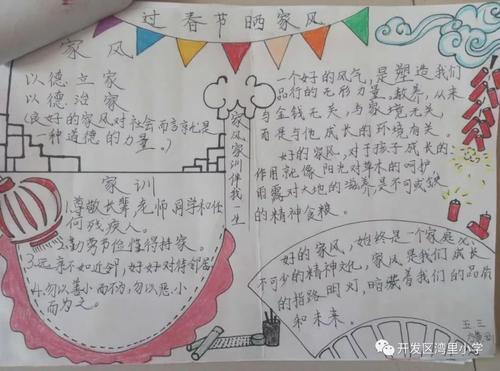 过春节晒家风
家风
以德立家
以德治家
(良好的家风对社会而言就是
一种道德的力量。)
家训
1.尊敬长辈,老师,同学和任
何残疾人。
2.勤劳节俭懂得持家。
3.远亲不如近邻,好好对待邻居
4.勿以善小而不为,勿以恶小
而为之。
家风家训伴我一生
一个好的风气,是塑造我们
品行的无形力量。教养,从来
与金钱无关,与家境无关,
而是与他成长的环境有关。
好的家风,对于孩子成长的
作用就像阳光对草木的呵护
雨露对大地的滋养是不可或缺
的精神食粮。
好的家风,她始终是一个家庭必
不可少的精神文化,家风是我们成长
的指路明灯,暗藏着我们的品质
和未来。
五三
开发区湾里小学